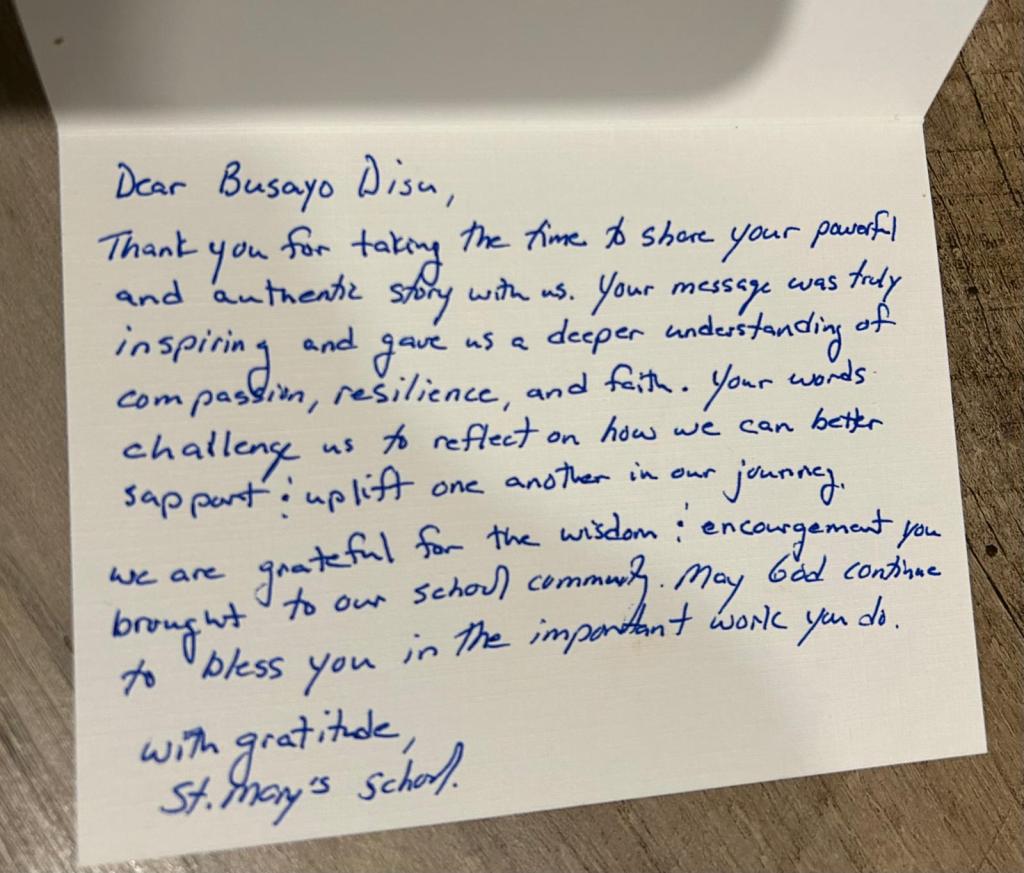 Dear Busayo Disu,
Thank you for taking the time to share your powerful
and authentic story with us. Your message was truly
inspiring and gave us a deeper understanding of
compassion, resilience, and faith. Your words
challenge us to reflect on how we can better
support & uplift one another in our journey.
we are grateful for the wisdom & encourgement you
brought to our school community. May God continue
to bless you in the important work you do.
with gratitude,
St. Mary's school.